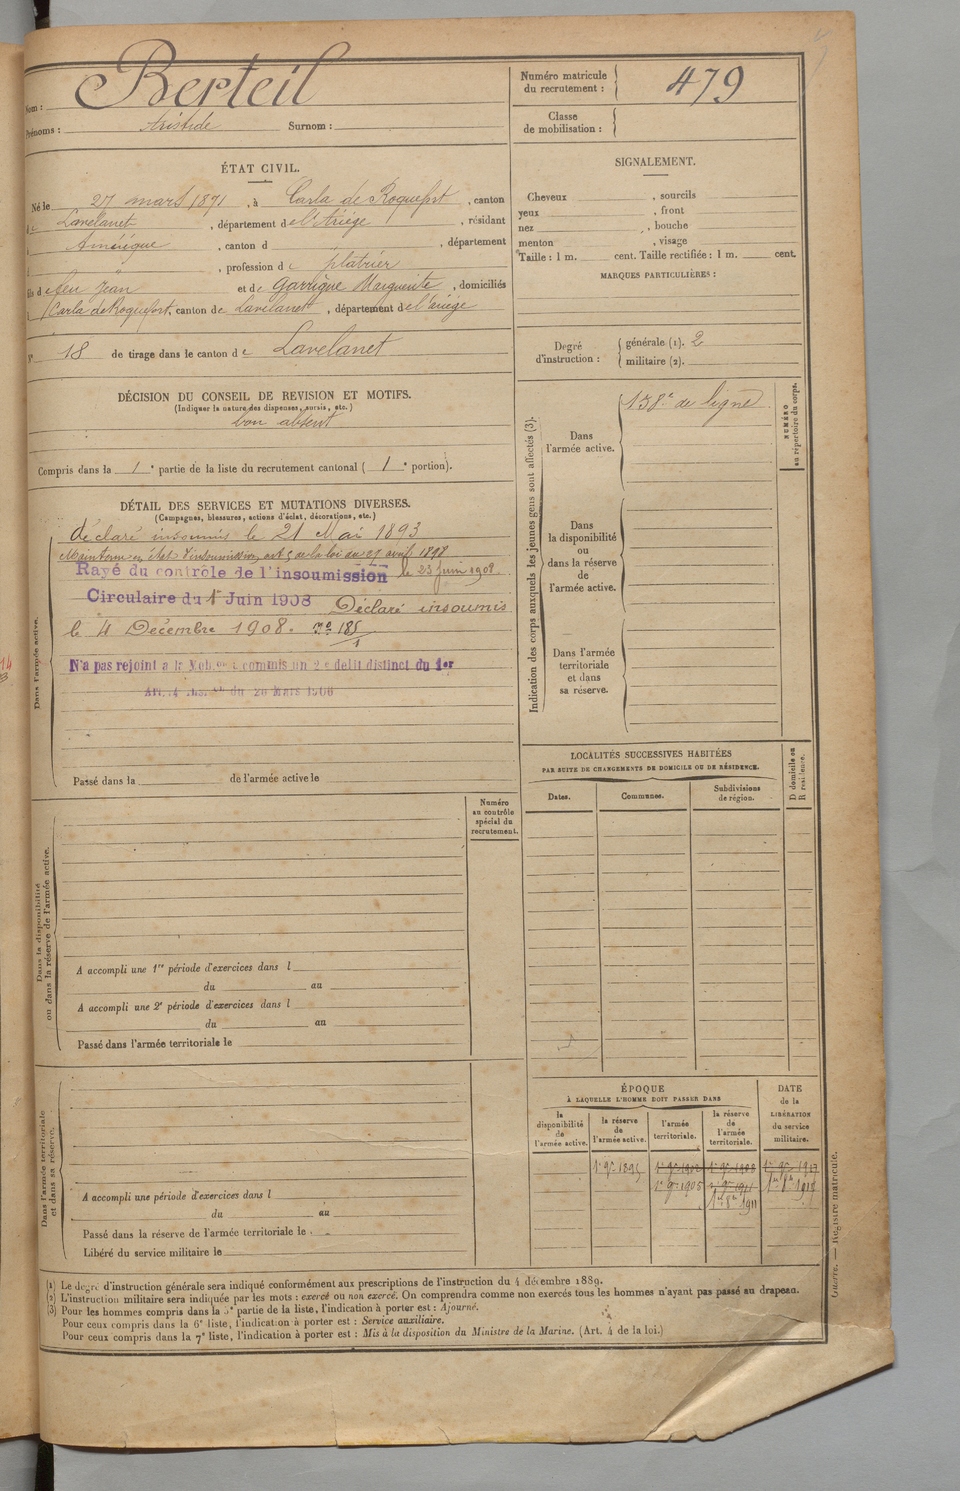 Nom : Berteil
Prénoms : Aristide Surnom :
Numéro matricule du recrutement : 479
Classe de mobilisation :
ÉTAT CIVIL.
Né le 27 mars 1871, à Carla de Roquefort, canton
de Lavelanet, département de l'Ariège, résidant
à Amérique, canton d , département
d , profession de platrier
fils de feu Jean et de Garrigue Marguerite, domiciliés
à Carla de Roquefort, canton de Lavelanet, département de l'ariège
N° 18 de tirage dans le canton de Lavelanet
SIGNALEMENT.
Cheveux , sourcils
yeux , front
nez , bouche
menton , visage
Taille : 1 m. cent. Taille rectifiée : 1 m. cent.
MARQUES PARTICULIÈRES :
Degré d'instruction :
générale (1). 2
militaire (2).
DÉCISION DU CONSEIL DE REVISION ET MOTIFS.
(Indiquer la nature des dispenses, sursis, etc.)
bon absent
Compris dans la 1e partie de la liste du recrutement cantonal ( 1e portion).
DÉTAIL DES SERVICES ET MUTATIONS DIVERSES.
(Campagnes, blessures, actions d'éclat, décorations, etc.)
Dans l'armée active.
déclaré insoumis le 21 Mai 1893
Maintenu en état d'insoumission art 5 de la loi du 27 avril 1898
Rayé du contrôle de l'insoumission le 23 juin 1908.
Circulaire du 1er Juin 1908 Déclaré insoumis
le 4 Décembre 1908.
N'a pas rejoint a commis un 2e délit distinct du 1er
du 20 Mars 1906
Passé dans la de l'armée active le
Indication des corps auxquels les jeunes gens sont affectés (3).
Dans l'armée active.
138e de ligne
NUMÉRO au répertoire du corps.
Dans la disponibilité ou dans la réserve de l'armée active.
Dans l'armée territoriale et dans sa réserve.
LOCALITÉS SUCCESSIVES HABITÉES
PAR SUITE DE CHANGEMENTS DE DOMICILE OU DE RÉSIDENCE.
Dates. Communes. Subdivisions de région. D domicile ou R résidence.
Numéro au contrôle spécial du recrutement.
Dans la disponibilité ou dans la réserve de l'armée active.
A accompli une 1re période d'exercices dans l
du au
A accompli une 2e période d'exercices dans l
du au
Passé dans l'armée territoriale le
Dans l'armée territoriale et dans sa réserve.
A accompli une période d'exercices dans l
du au
Passé dans la réserve de l'armée territoriale le
Libéré du service militaire le
ÉPOQUE
À LAQUELLE L'HOMME DOIT PASSER DANS
la disponibilité de l'armée active. la réserve de l'armée active. l'armée territoriale. la réserve de l'armée territoriale.
DATE de la LIBÉRATION du service militaire.
1895 1902 1908 1917
1905 1911 1918
1911
Guerre. — Registre matricule.
(1) Le degré d'instruction générale sera indiqué conformément aux prescriptions de l'instruction du 4 décembre 1889.
(2) L'instruction militaire sera indiquée par les mots : exercé ou non exercé. On comprendra comme non exercés tous les hommes n'ayant pas passé au drapeau.
(3) Pour les hommes compris dans la 5e partie de la liste, l'indication à porter est : Ajourné.
Pour ceux compris dans la 6e liste, l'indication à porter est : Service auxiliaire.
Pour ceux compris dans la 7e liste, l'indication à porter est : Mis à la disposition du Ministre de la Marine. (Art. 4 de la loi.)